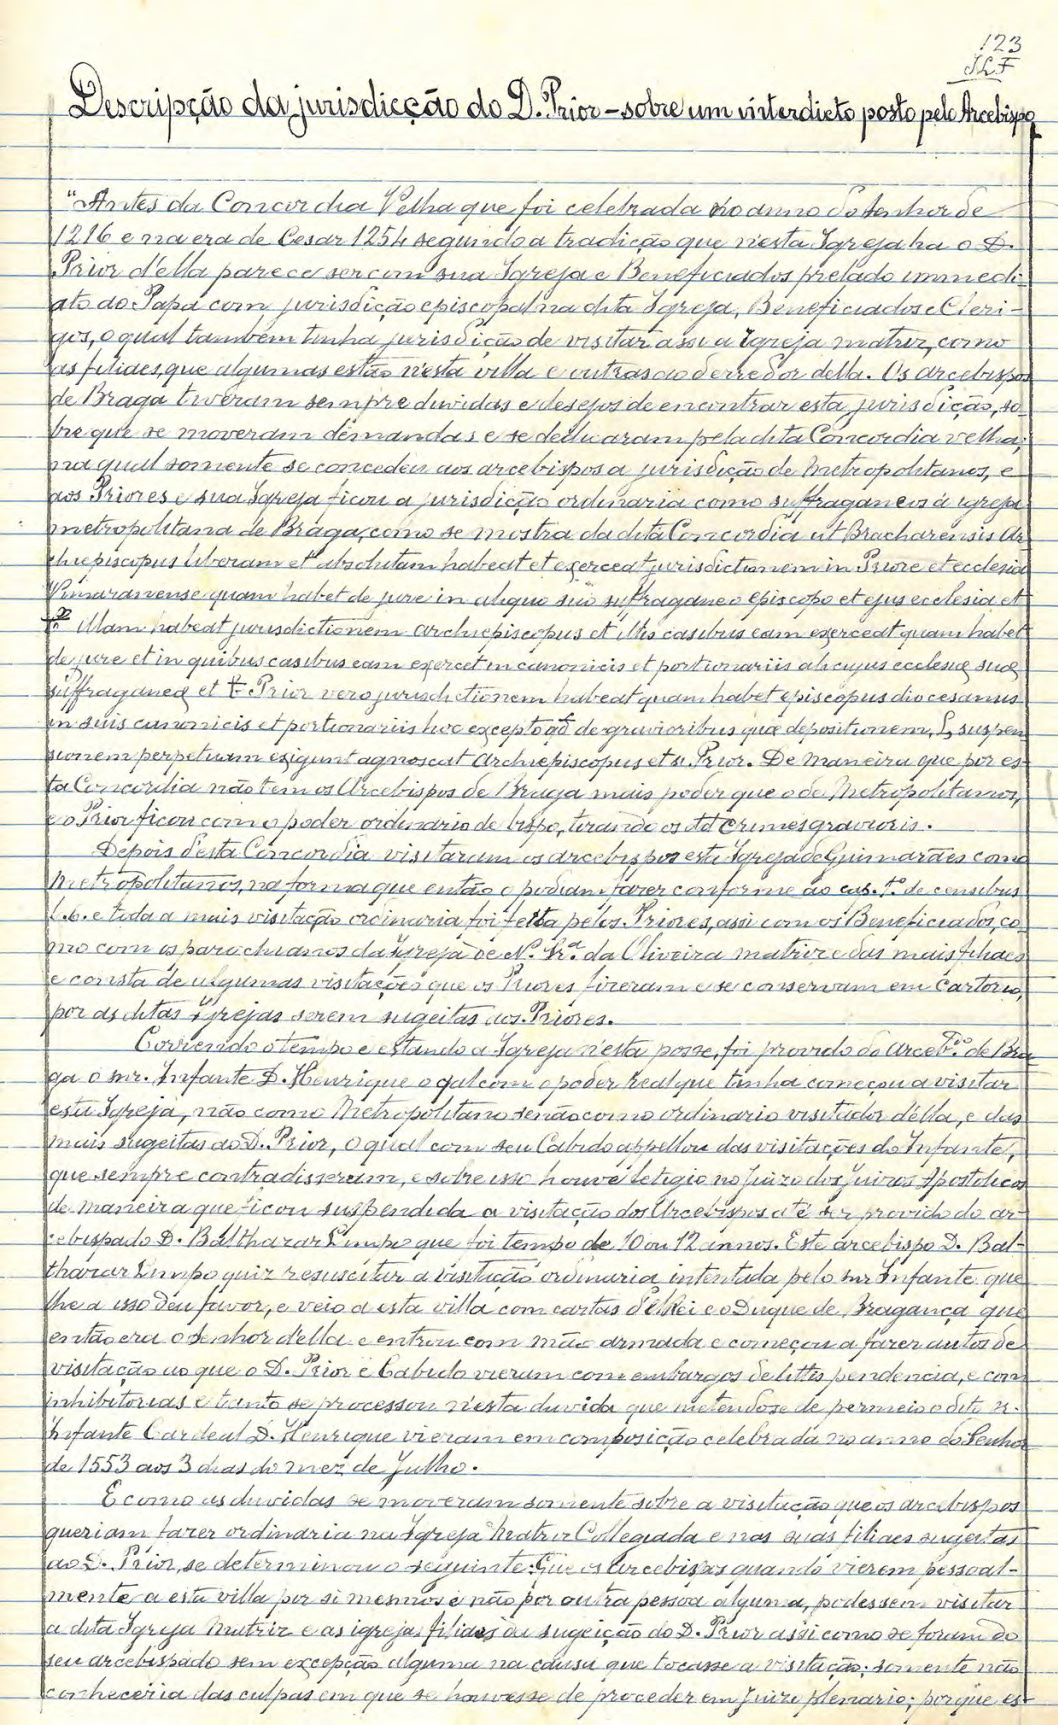 123
J.L.F
Descripção da jurisdicção do D. Prior – sobre um interdicto posto pelo Arcebispo
"Antes da Concordia Velha que foi celebrada no anno do Senhor de
1216 e na era de Cesar 1254 segundo a tradição que n'esta Igreja ha o D.
Prior d'ella parece ser com sua Igreja e Beneficiados prelado immedi-
ato do Papa com jurisdição episcopal na dita Igreja, Beneficiados e Cleri-
gos, o qual tambem tinha jurisdição de visitar assi a Igreja matriz, como
as filiaes, que algumas estão n'esta villa e outras ao derredor della. Os arcebispos
de Braga tiveram sempre duvidas e desejos de encontrar esta jurisdição, so-
bre que se moveram demandas e se declararam pela dita Concordia velha,
na qual somente se concedeu aos arcebispos a jurisdição de Metropolitanos, e
aos Priores e sua Igreja ficou a jurisdição ordinaria como suffraganeos á igreja
metropolitana de Braga, como se mostra da dita Concordia ut Bracharensis Ar-
chiepiscopus liberam et absolutam habeat et exerceat jurisdictionem in Priore et ecclesia
Vimaranense quam habet de jure in aliquo suo suffraganeo episcopo et ejus ecclesia et
illam habeat jurisdictionem archiepiscopus et illis casibus eam exerceat quam habet
de jure et in quibus casibus eam exercet in canonicis et portionariis alicujus ecclesię suę
suffraganeę et Prior vero jurisdictionem habeat quam habet episcopus diocesanus
in suis canonicis et portionariis hoc excepto qd de gravioribus quæ depositionem, L suspen
sionem perpetuam exigunt agnoscat Archiepiscopus et Prior. De maneira que por es-
ta Concordia não tem os Arcebispos de Braga mais poder que o de Metropolitanos,
e o Prior ficou com o poder ordinario de bispo, tirando os crimes gravioris.
Depois d'esta Concordia visitaram os arcebispos esta Igreja de Guimarães como
Metropolitanos, na forma que então o podiam fazer conforme ao cap. 1º de censibus
L. 6. e toda a mais visitação ordinaria foi feita pelos Priores, assi com os Beneficiados, co-
mo com os parochianos da Igreja de Nª Srª da Oliveira matriz e das mais filiaes
e consta de algumas visitações que os Priores fizeram e se conservam em cartorio,
por as ditas Igrejas serem sugeitas aos Priores.
Correndo o tempo e estando a Igreja n'esta posse, foi provido do Arceb.do de Bra-
ga o snr. Infante D. Henrique o qal com o poder Real que tinha começou a visitar
esta Igreja, não como Metropolitano senão como ordinario visitador d'ella, e das
mais sugeitas ao D. Prior, o qual com seu Cabido appellou das visitações do Infante,
que sempre contradisseram, e sobre isso houve letigio no Juizo dos Juizes Apostolicos
de maneira que ficou suspendida a visitação dos Arcebispos até ser provido do ar-
cebispado D. Balthazar Limpo que foi tempo de 10 ou 12 annos. Este arcebispo D. Bal-
thazar Limpo quiz resuscitar a visitação ordinaria intentada pelo snr Infante que
lhe a isso deu favor, e veio a esta villa com cartas d'elRei e o Duque de Bragança que
então era o senhor d'ella e entrou com mão armada e começou a fazer autos de
visitação ao que o D. Prior e Cabido vieram com embargos de littis pendencia, e com
inhibitorias e tanto se processou n'esta duvida que metendo-se de permeio o dito sr.
Infante Cardeal D. Henrique vieram em composição celebrada no anno do Senhor
de 1553 aos 3 dias do mez de Julho.
E como as duvidas se moveram somente sobre a visitação que os arcebispos
queriam fazer ordinaria na Igreja Matriz Collegiada e nas suas filiaes sugeitas
ao D. Prior, se determinou o seguinte: Que os arcebispos quando vierem pessoal-
mente a esta villa por si mesmos e não por outra pessoa alguma, podessem visitar
a dita Igreja Matriz e as igrejas filiaes da sugeição do D. Prior assi como se foram do
seu arcebispado sem excepção alguma na causa que tocasse a visitação; somente não
conheceria das culpas em que se houvesse de proceder em Juizo plenario; porque es-